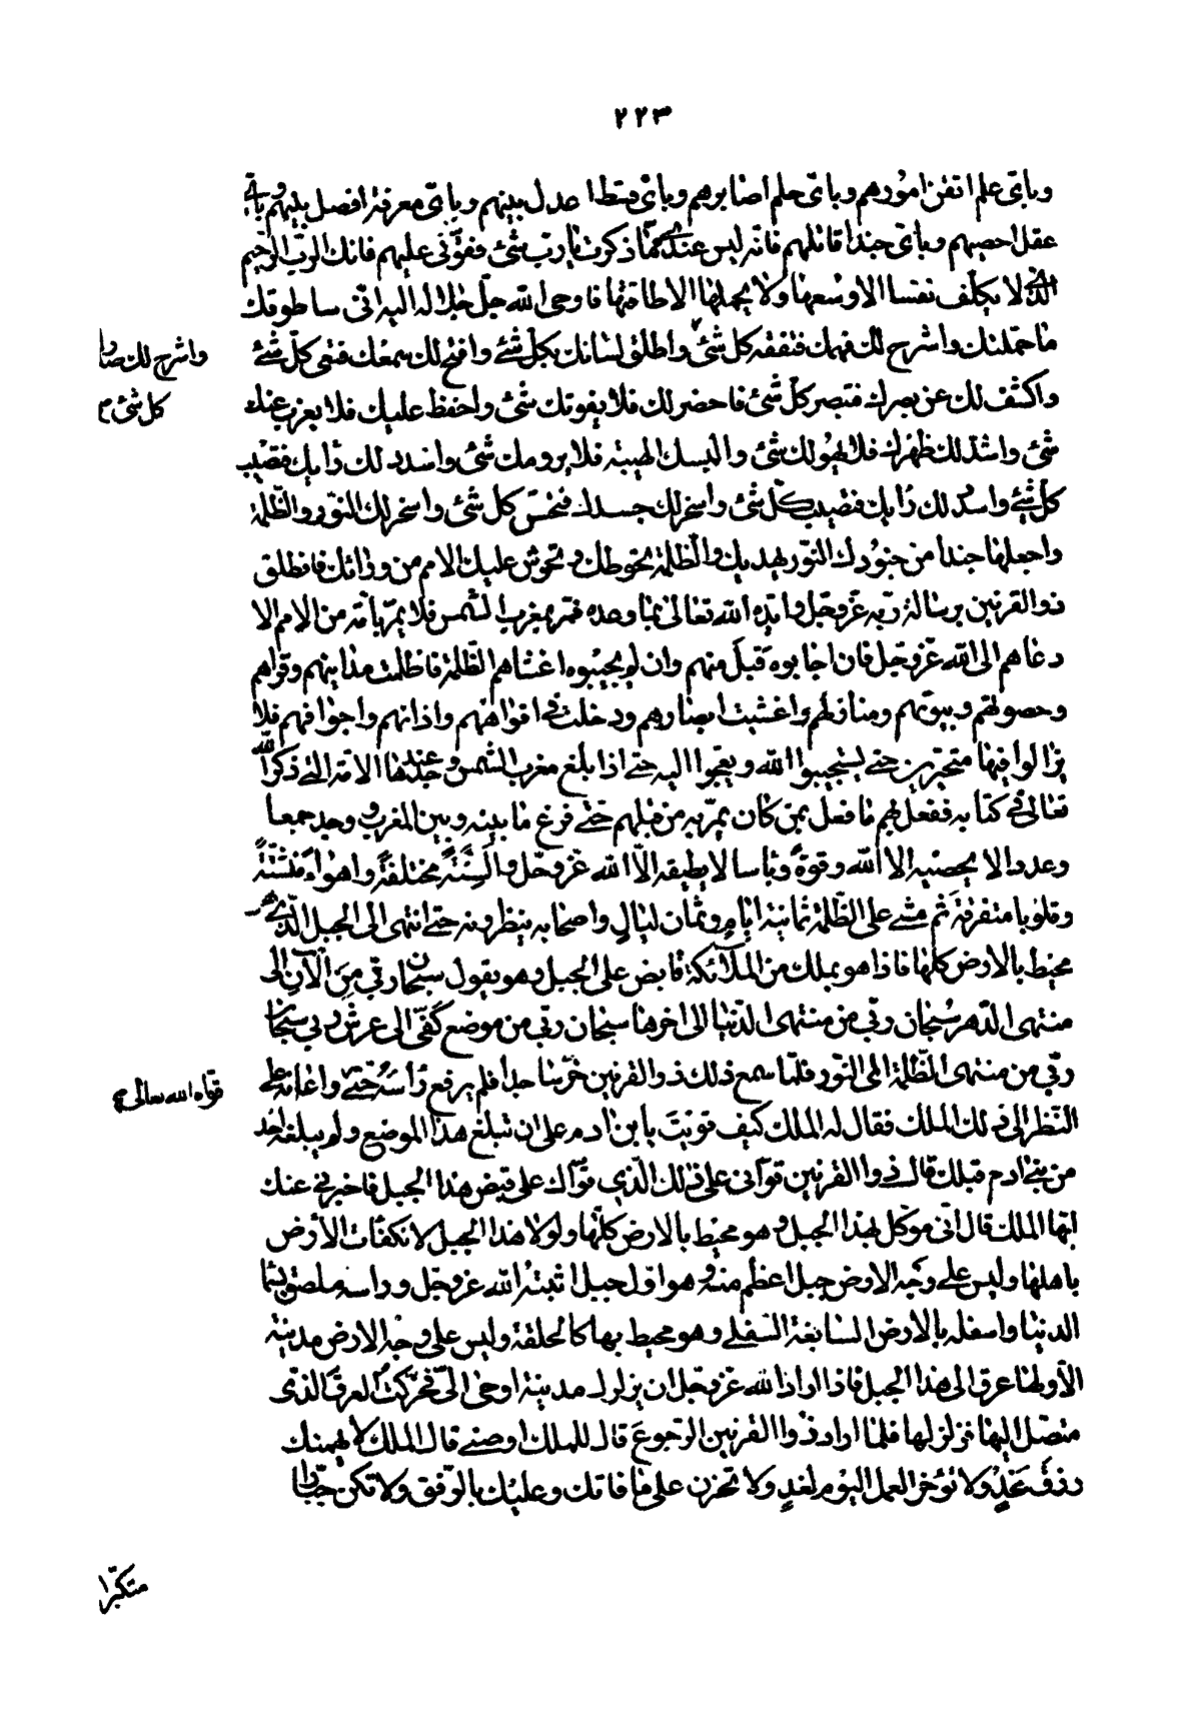 ٢٢٣
وباى علم اتقن امورهم وباى حلم اصابرهم وباى قسط اعدل بينهم وباى معرفة افصل بينهم وباى
عقل احصيهم وباى جند اقاتلهم فانه ليس عندى مما ذكرت يا رب شئ فقونى عليهم فانك الرب الرحيم
الذى لا يكلف نفسا الا وسعها ولا يحملها الا طاقتها فاوحى الله جل جلاله اليه انى ساطوقك
ما حملتك واشرح لك فهمك فتفقه كل شئ واطلق لسانك بكل شئ وافتح لك سمعك فتعى كل شئ
واشرح لك صدرك
واكشف لك عن بصرك فتبصر كل شئ فاحضر لك فلا يفوتك شئ واحفظ عليك فلا يعزب عنك
كل شئ م
شئ واشد لك ظهرك فلا يهولك شئ والبسك الهيبة فلا يرومك شئ واسدد لك رايك فتصيب
كل شئ واسدد لك رايك فتصيب كل شئ واسخر لك جسدك فتحس كل شئ واسخر لك النور والظلمة
واجعلهما جندا من جنودك النور يهديك والظلمة تحوطك وتحوش عليك الامم من ورائك فانطلق
ذو القرنين برسالة ربه عز وجل وايده الله تعالى بما وعده فمر بمغرب الشمس فلا يمر بامة من الامم الا
دعاهم الى الله عز وجل فان اجابوه قبل منهم وان لم يجيبوه اغشاهم الظلمة فاظلمت مدائنهم وقراهم
وحصونهم وبيوتهم ومنازلهم واغشيت ابصارهم ودخلت فى افواههم واذانهم واجوافهم فلا
يزالوا فيها متحيرين حتى يستجيبوا الله ويعجوا اليه حتى اذا بلغ مغرب الشمس وجد عندها الامة التى ذكر الله
تعالى فى كتابه ففعل بهم ما فعل بمن كان يمر به من قبلهم حتى فرغ ما بينه وبين المغرب ووجد جمعا
وعددا لا يحصيه الا الله وقوة وباسا لا يطيقه الا الله عز وجل والسنة مختلفة واهواء متشتتة
وقلوبا متفرقة ثم مشى على الظلمة ثمانية ايام وثمان ليال واصحابه ينظرونه حتى انتهى الى الجبل الذى هو
محيط بالارض كلها فاذا هو بملك من الملائكة قابض على الجبل وهو يقول سبحان ربى من الآن الى
منتهى الدهر سبحان ربى من منتهى الدنيا الى اخرها سبحان ربى من موضع كفى الى عرش ربى سبحان
ربى من منتهى الظلمة الى النور فلما سمع ذلك ذو القرنين خر ساجدا فلم يرفع راسه حتى واعانه على
قواه الله تعالى
النظر الى ذلك الملك فقال له الملك كيف قويت يا بن ادم على ان تبلغ هذا الموضع ولم يبلغه احد
من بنى ادم قبلك قال ذو القرنين قوانى على ذلك الذى قواك على قبض هذا الجبل فاخبرنى عنك
ايها الملك قال انى موكل بهذا الجبل وهو محيط بالارض كلها ولولا هذا الجبل لانكفات الأرض
باهلها وليس على وجه الارض جبل اعظم منه وهو اول جبل اثبته الله عز وجل وراسه ملصق بسماء
الدنيا واسفله بالارض السابعة السفلى وهو محيط بها كالحلقة وليس على وجه الارض مدينة
الا ولها عرق الى هذا الجبل فاذا اراد الله عز وجل ان يزلزل مدينة اوحى الى فحركت العرق الذى
متصل اليها فزلزلها فلما اراد ذو القرنين الرجوع قال للملك اوصنى قال الملك لا يهمنك
رزق غد ولا تؤخر العمل اليوم لغد ولا تحزن على ما فاتك وعليك بالرفق ولا تكن جبارا
متكبرا